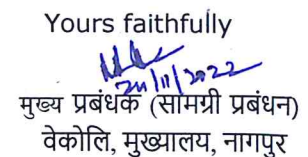 Yours faithfully
24/11/2022
मुख्य प्रबंधक (सामग्री प्रबंधन)
वेकोलि, मुख्यालय, नागपुर